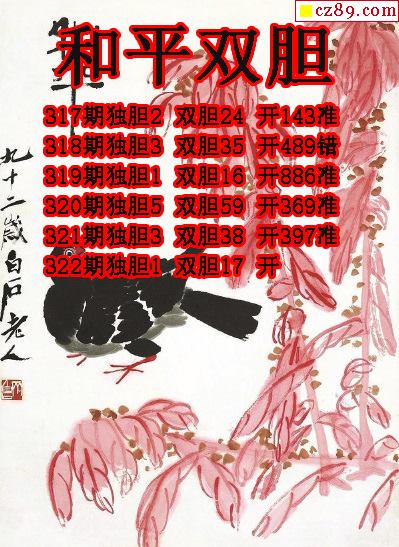 cz89.com
和平双胆
317期独胆2 双胆24 开143准
318期独胆3 双胆35 开489错
319期独胆1 双胆16 开886准
320期独胆5 双胆59 开369准
321期独胆3 双胆38 开397准
322期独胆1 双胆17 开
九十二岁白石老人